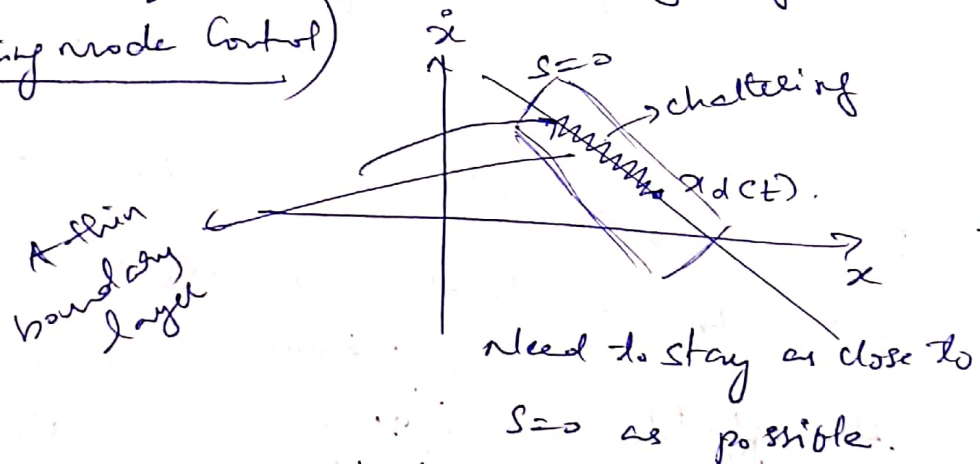 ing mode Control)
ẋ
s=0
chattering
xd(t).
x
A thin
boundary
layer
Need to stay as close to
S=0 as possible.